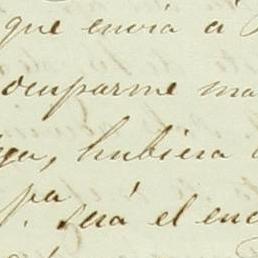 que envia á
ocuparme ma
hubiera
pa
será el enc